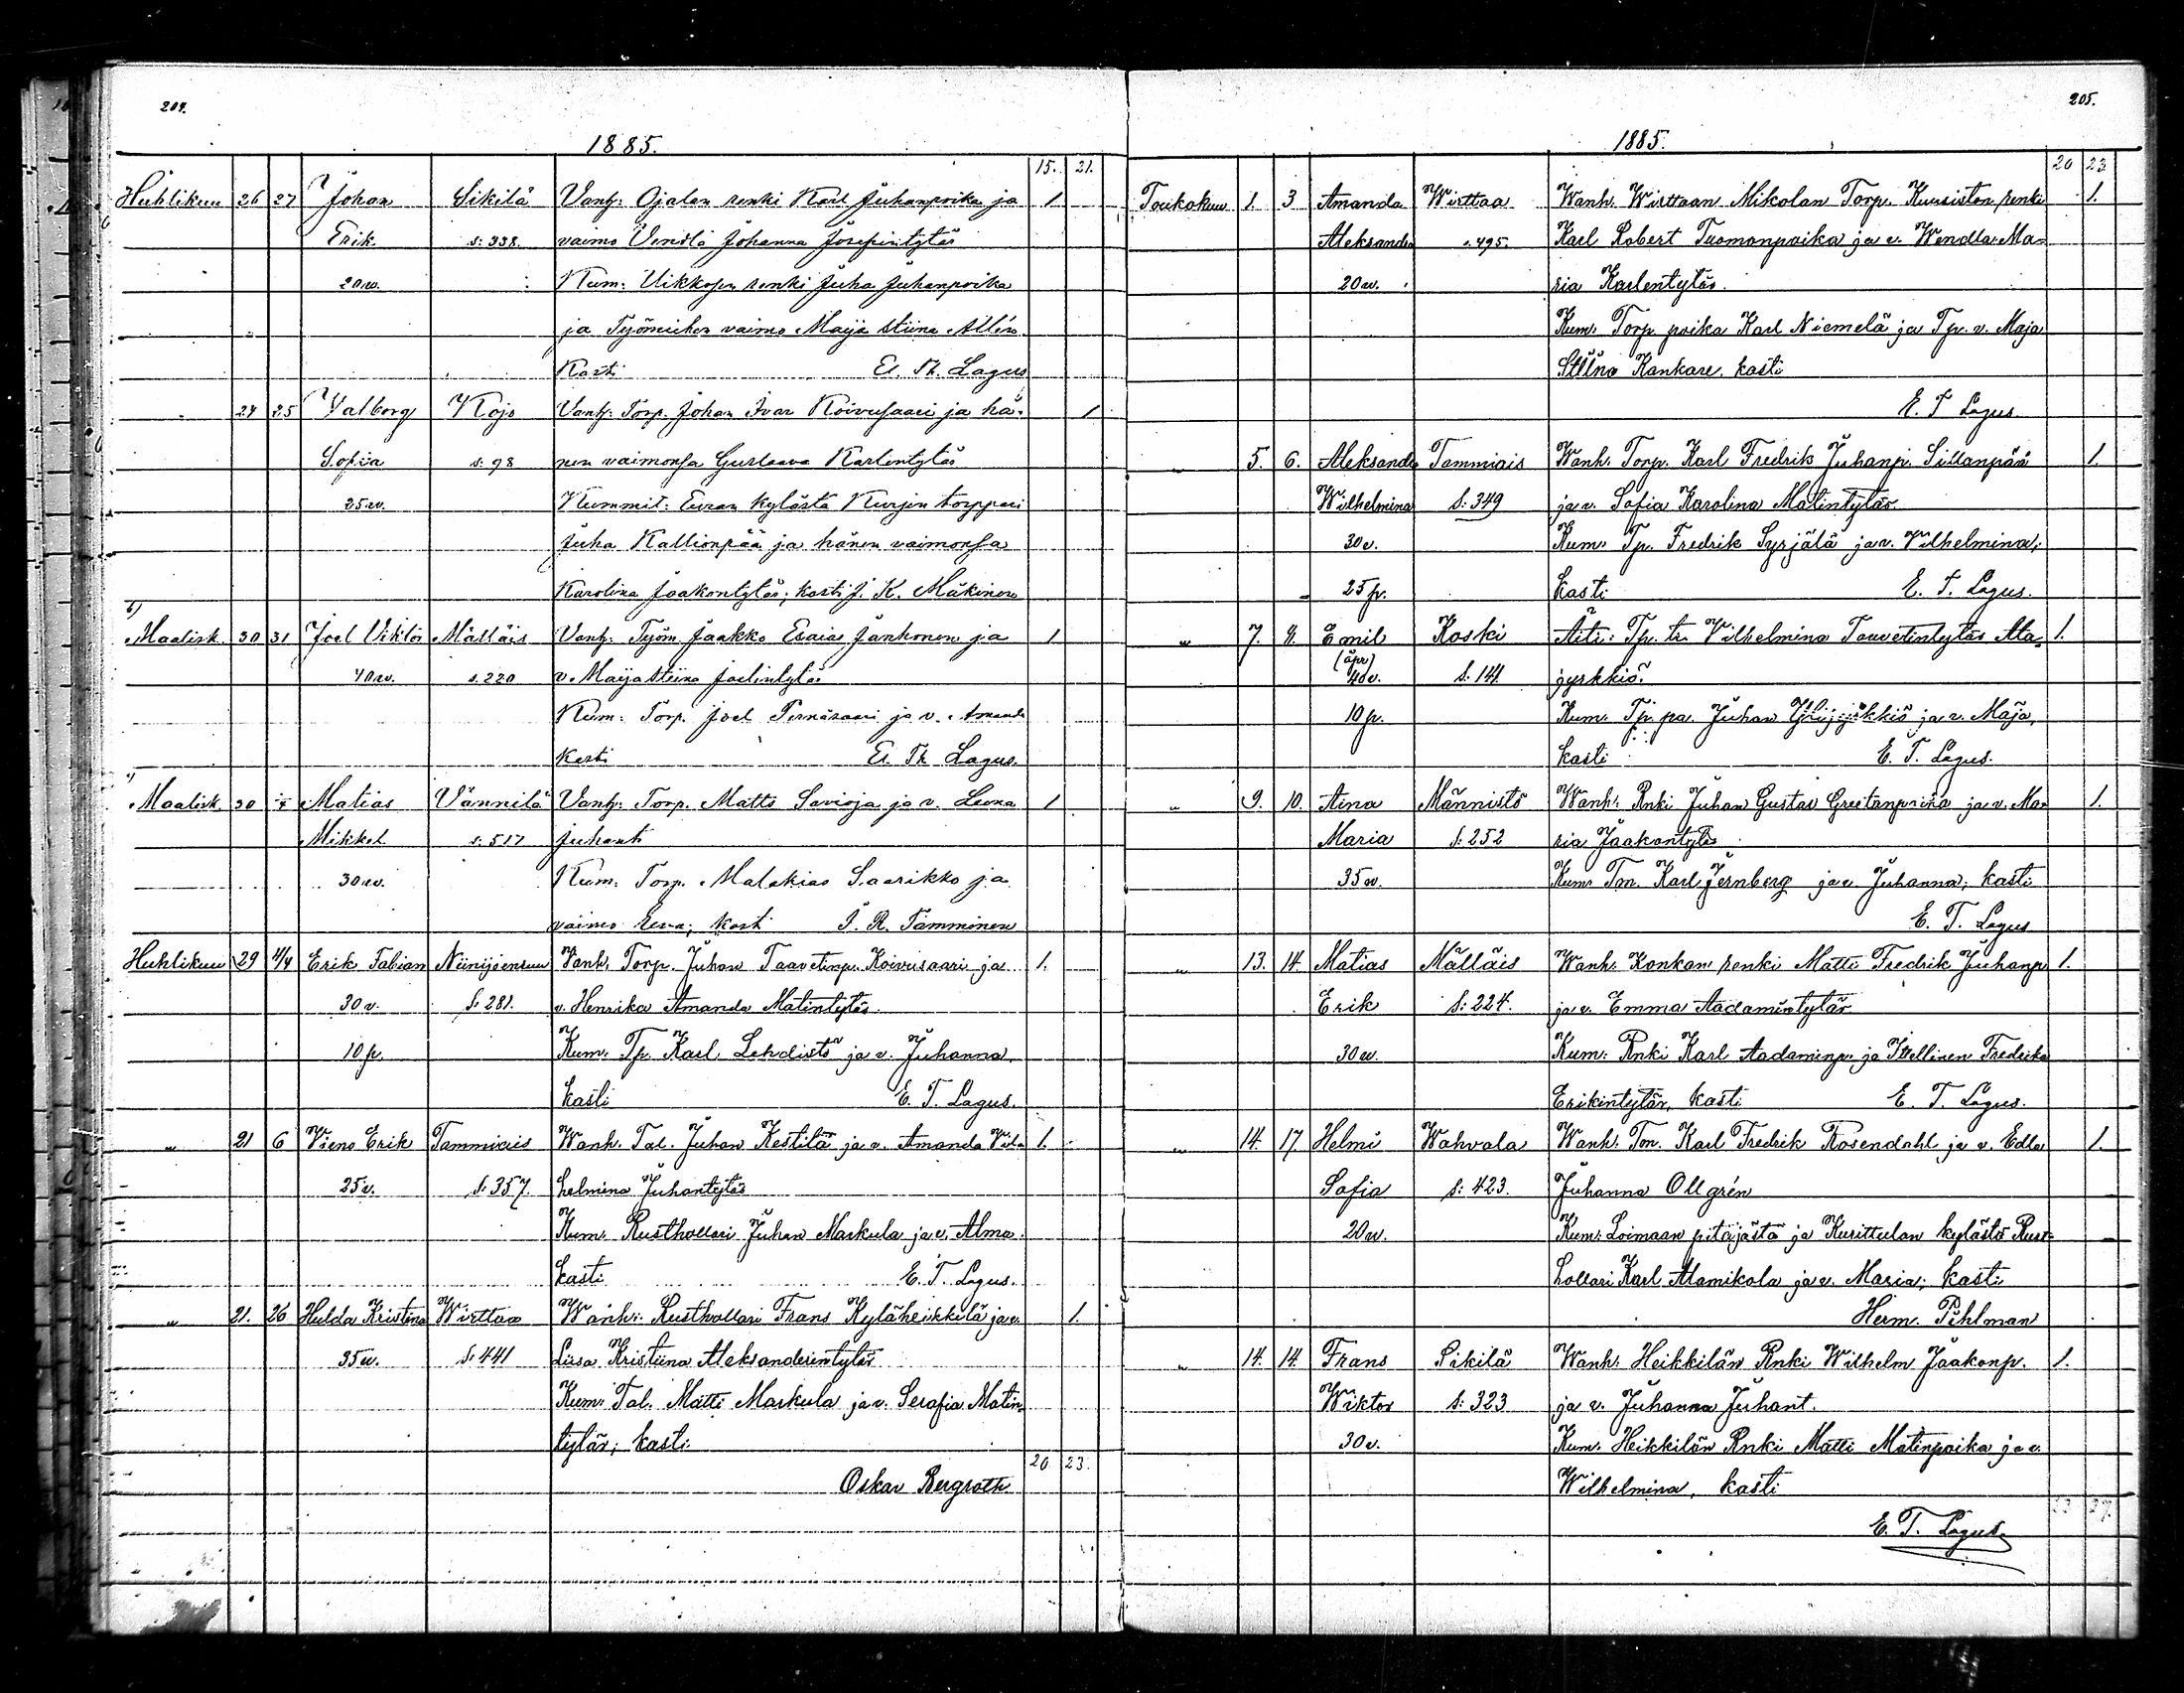 204.
1885.
15. 21.
Huhtikuu 26 27 Johan Sikilä Vanh: Ojalan renki Karl Juhanpoika ja 1
Erik s: 338. vaimo Vendla Johanna Josefintytär
20 w. Kum: Uikkosen renki Juha Juhanpoika
ja Työmiehen vaimo Maija Stiina Allén.
Kasti El. Th. Lagus
24 25 Valborg Kojo Vanh: Torp. Johan Ivar Koivusaari ja hä- 1
Sofia s: 98 nen vaimonsa Gustaava Karlentytär
25 w. Kummit: Euran kylästä Kurjen torppari
Juha Kallionpää ja hänen vaimonsa
Karolina Jaakontytär; kasti J. K. Mäkinen
Maalisk. 30 31 Joel Viktor Mälläis Vanh: Työm. Jaakko Esaias Janhonen ja 1
40 w. s. 220 v. Maija Stiina Joelintytär
Kum: Torp. Joel Pernäsaari ja v. Amanda
Kasti El. Th Lagus.
Maalisk 30 Matias Vännilä Vanh: Torp. Matts Savioja ja v. Leena 1
Mikkel s: 517 Juhant.
30 w. Kum: Torp. Malakias Saarikko ja
vaimo Eeva; kast J. R. Tamminen
Huhtikuu 29 1/4 Erik Fabian Niinijoensuu Vanh. Torp. Juhan Taavetinp. Koivusaari ja 1.
30 v. S: 281. v. Henrika Amanda Matintytär.
10 p. Kum. Tp. Karl Lehdistö ja v. Juhanna.
kasti E. T. Lagus.
" 21 6 Vieno Erik Tammiais Wanh. Tal. Juhan Kestilä ja v. Amanda Vil- 1.
25 v. S: 357. helmina Juhantytär
Kum. Rusthollari Juhan Markula ja v. Alma.
kasti E. T. Lagus.
" 21. 26 Hulda Kristina Wirttaa Wanh: Rusthollari Frans Kyläheikkilä ja v. 1.
35 w. S: 441 Liisa Kristiina Aleksanderintytär
Kum: Tal. Matti Markula ja v. Serafia Matin-
tytär; kasti.
20 23.
Oskar Bergroth
205.
1885.
20 23
Toukokuu 1. 3 Amanda Wirttaa Wanh. Wirttaan Mikolan Torp. Kuusiston renki 1.
Aleksandra s. 495. Karl Robert Tuomonpoika ja v. Wendla Ma-
20 w. ria Karlentytär.
Kum. Torp. poika Karl Niemelä ja Tp. v. Maja
Stiina Kankare. kasti
E. T Lagus.
" 5. 6. Aleksandra Tammiais Wanh. Torp. Karl Fredrik Juhanp. Sillanpää 1.
Wilhelmina S: 349 ja v. Sofia Karolina Matintytär.
30 v. Kum. Tp. Fredrik Syrjälä ja v. Vilhelmina;
25 p. kasti E. T. Lagus.
" 7. 8. Emil Koski Äiti: Tp. tr. Vilhelmina Taavetintytär Ala- 1.
(äpr)
40 v. S. 141. jyrkkiö.
10 p. Kum. Tp. pa. Juhan Ylijyrkkiö ja v. Maja,
kasti E. T. Lagus.
" 9. 10. Aina Männistö Wanh: Rnki Juhan Gustav Greetanpoika ja v. Ma- 1.
Maria S: 252 ria Jaakontytär
35 w. Kum. Tm. Karl Jernberg ja v. Juhanna; kasti
E. T. Lagus
" 13. 14. Matias Mälläis Wanh: Konkan renki Matti Fredrik Juhanp 1.
Erik S: 224. ja v. Emma Aadamintytär
30 w. Kum: Rnki Karl Aadaminp. ja Itellinen Fredrika
Erikintytär, kasti E. T. Lagus.
" 14. 17. Helmi Wahvala Wanh: Tm. Karl Fredrik Rosendahl ja v. Edla 1.
Sofia S: 423. Juhanna Ollgrén
20 w. Kum: Loimaan pitäjästä ja Kurittulan kylästä Rust-
hollari Karl Alamikola ja v. Maria; kasti
Herm. Pihlman
" 14. 14. Frans Sikilä Wanh: Heikkilän Rnki Wilhelm Jaakonp. 1.
Wiktor S: 323 ja v. Juhanna Juhant.
30 v. Kum. Heikkilän Rnki Matti Matinpoika ja v.
Wilhelmina, kasti
23 27.
E. T. Lagus.